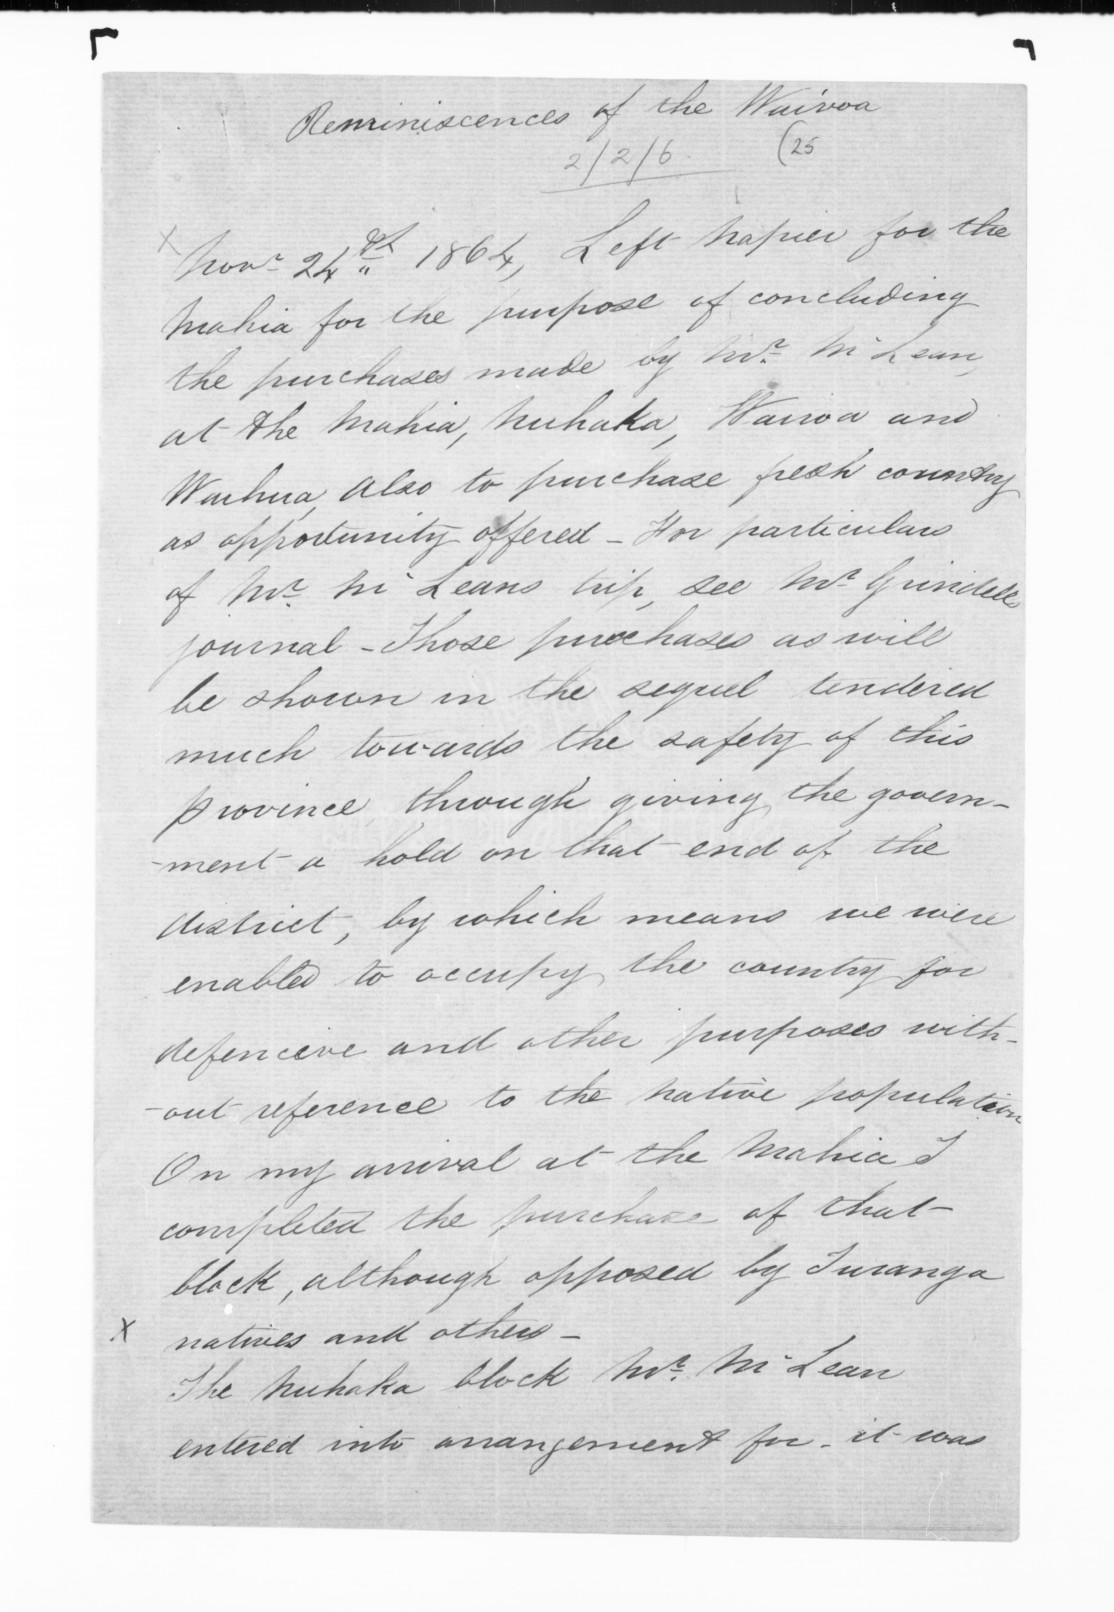 Reminiscences of the Wairoa
2/2/6 (25
X
Novr 24th 1864, Left Napier for the
Mahia for the purpose of concluding
the purchases made by Mr. McLean,
at the Mahia, Nuhaka, Wairoa and
Waihua, also to purchase fresh country
as opportunity offered - For particulars
of Mr. McLeans trip, see Mr Grindells
journal - Those purchases as will
be shown in the sequel tendered
much towards the safety of this
province, through giving the govern-
-ment a hold on that end of the
district, by which means we were
enabled to occupy the country for
defencive and other purposes with-
-out reference to the native population
On my arrival at the Mahia I
completed the purchase of that
block, although opposed by Turanga
X natives and others -
The Nuhaka block Mr. McLean
entered into arrangement for - it was